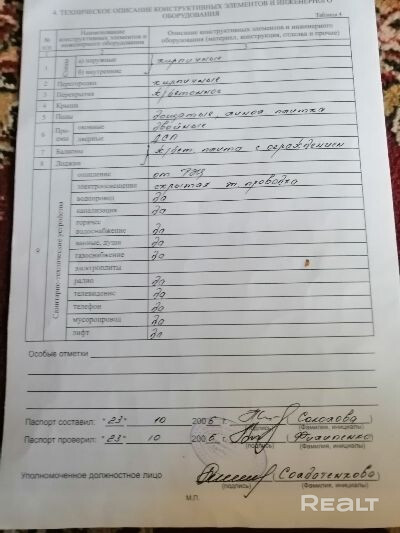 4. ТЕХНИЧЕСКОЕ ОПИСАНИЕ КОНСТРУКТИВНЫХ ЭЛЕМЕНТОВ И ИНЖЕНЕРНОГО
ОБОРУДОВАНИЯ
Таблица 4
№ п/п Наименование конструктивных элементов и инженерного оборудования Описание конструктивных элементов и инженерного оборудования (материал, конструкция, отделка и прочие)
1 2 3
1 Стены а) наружные кирпичные
б) внутренние
2 Перегородки кирпичные
3 Перекрытия ж/бетонное
4 Крыша
5 Полы дощатые, линол, плитка
6 Проемы оконные двойные
дверные ДСП
7 Балконы ж/бет. плита с ограждением
8 Лоджии
9 Санитарно-технические устройства отопление от ТЭЦ
электроосвещение скрытая эл. проводка
водопровод да
канализация да
горячее водоснабжение да
ванные, души да
газоснабжение да
электроплиты
радио да
телевидение да
телефон да
мусоропровод да
лифт да
Особые отметки
Паспорт составил: "23" 10 2006 г.
(подпись) (Фамилия, инициалы)
Паспорт проверил: "23" 10 2006 г. Филипенко
(подпись) (Фамилия, инициалы)
Уполномоченное должностное лицо Солдатенкова
(подпись) (Фамилия, инициалы)
М.П.
REALT